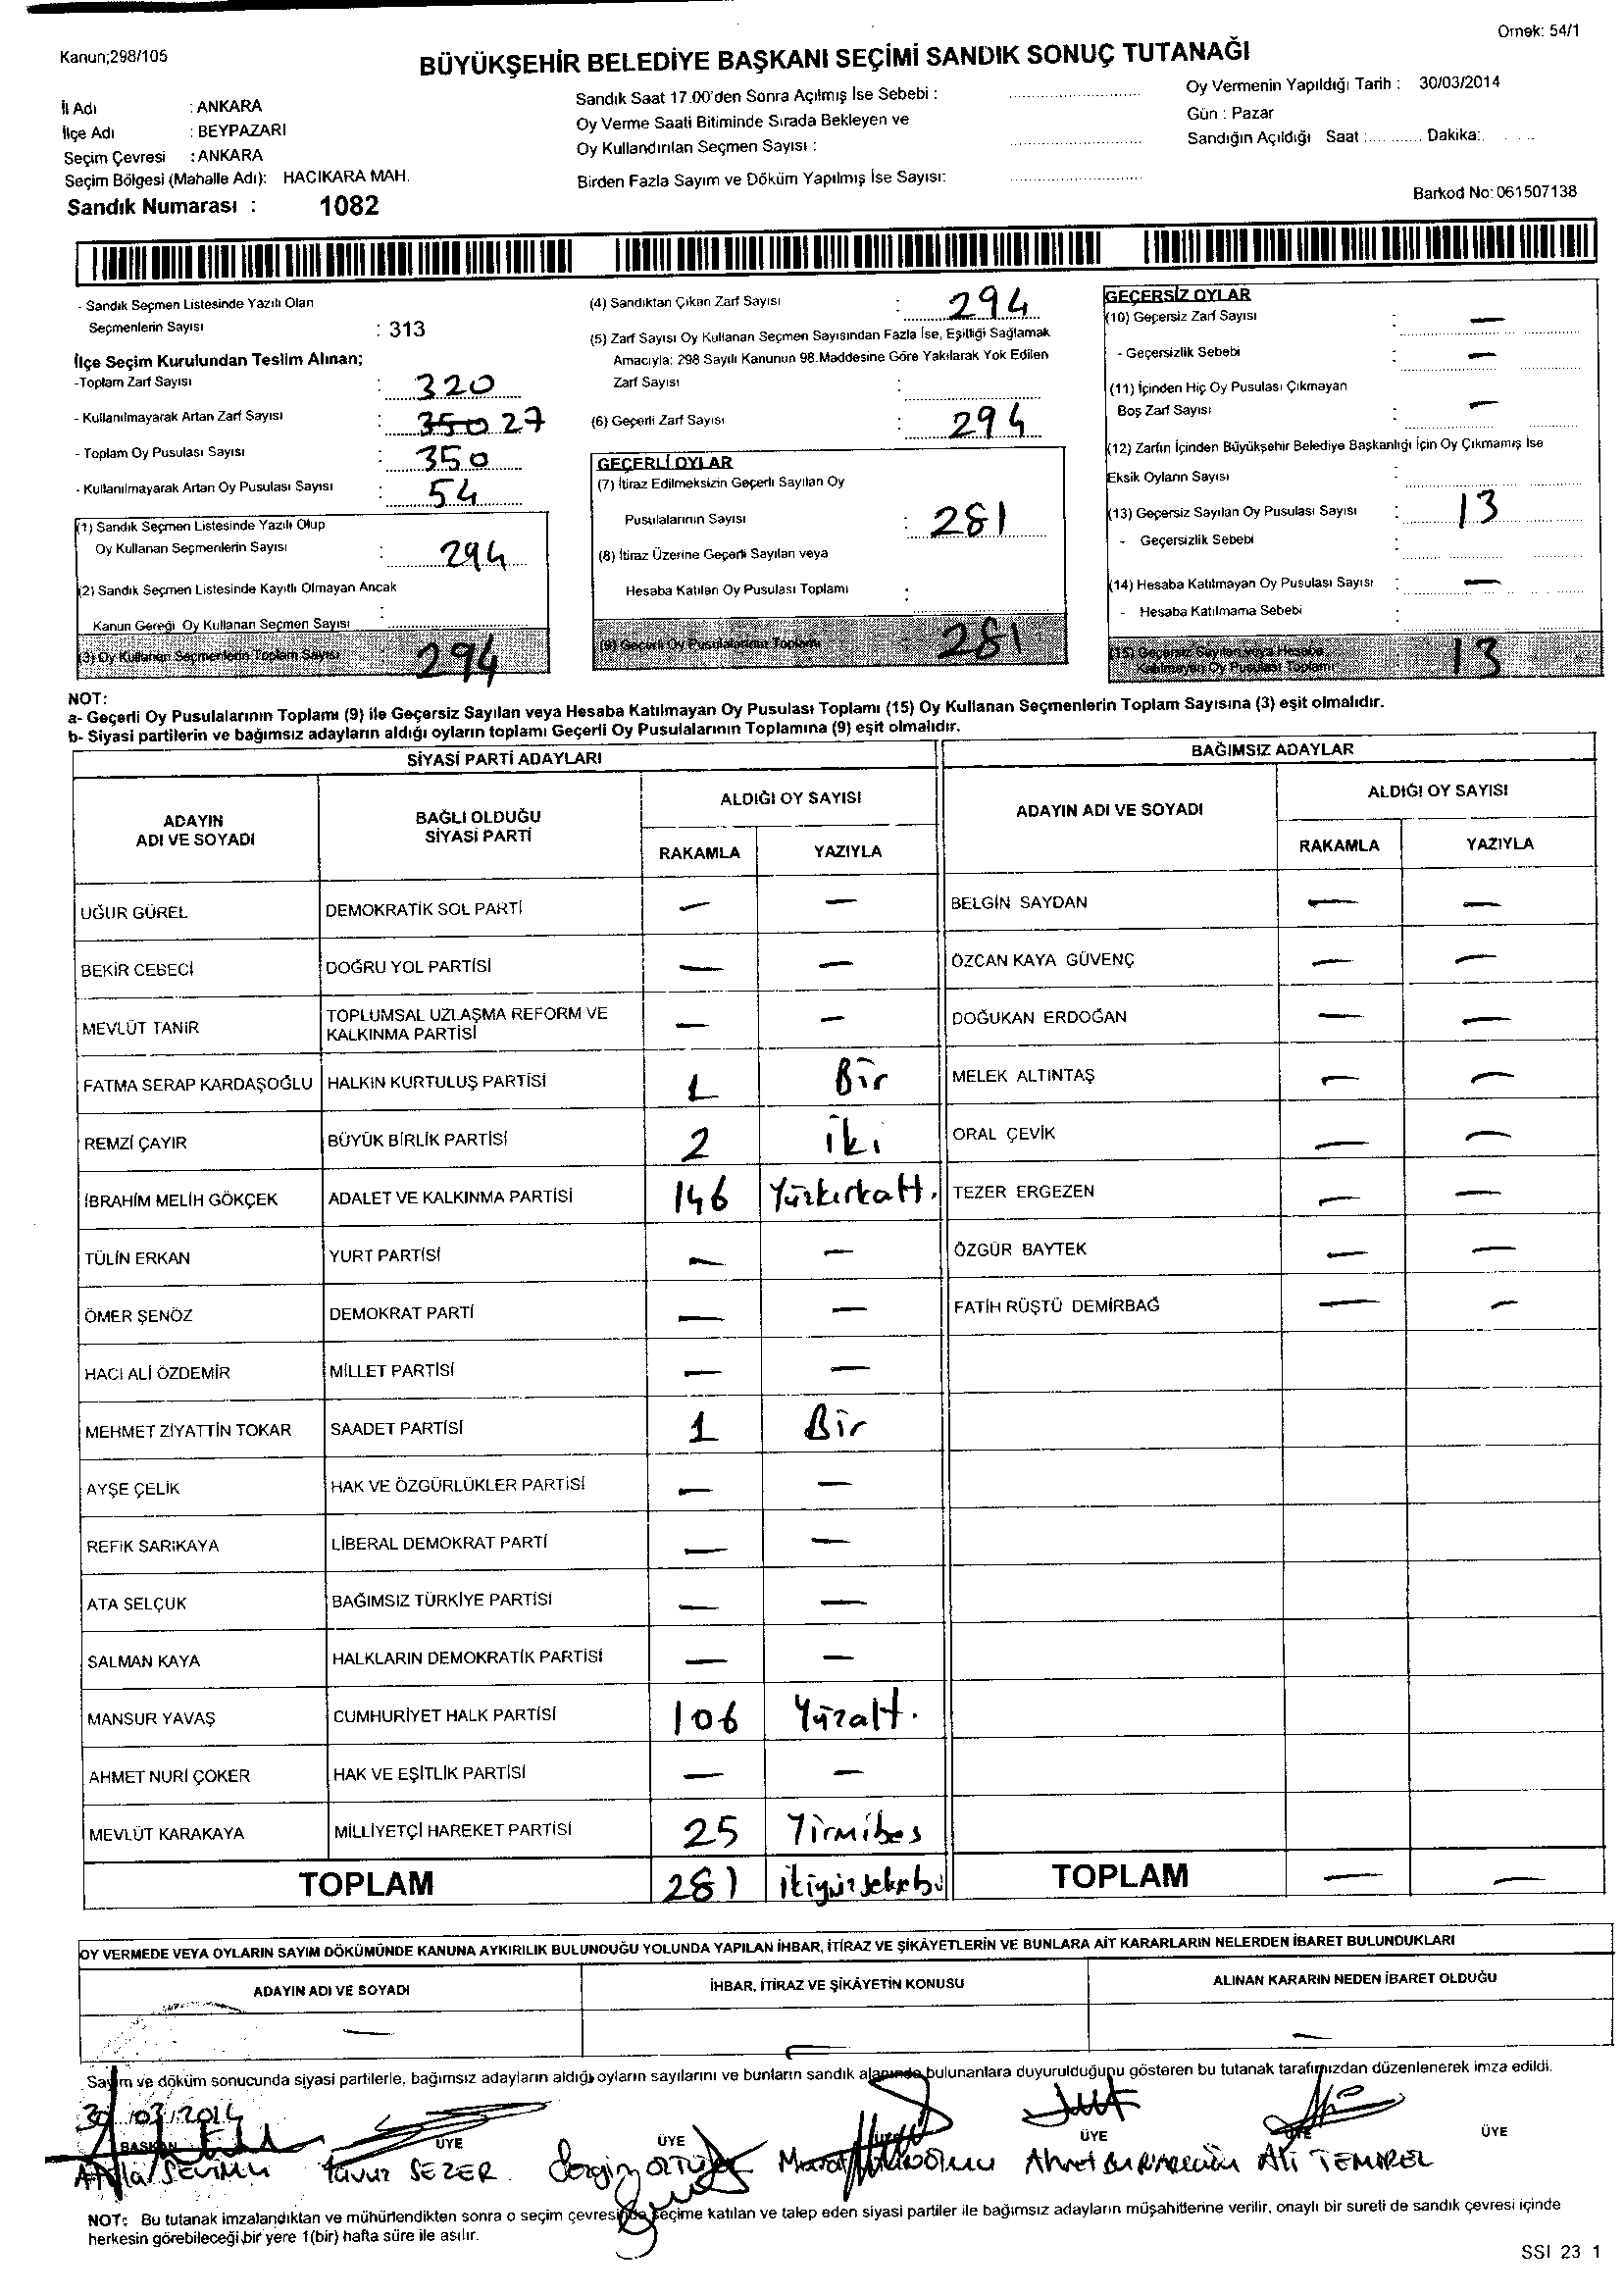 Örnek: 54/1
Kanun;298/105
BÜYÜKŞEHİR BELEDİYE BAŞKANI SEÇİMİ SANDIK SONUÇ TUTANAĞI
İl Adı : ANKARA
İlçe Adı : BEYPAZARI
Seçim Çevresi : ANKARA
Seçim Bölgesi (Mahalle Adı): HACIKARA MAH.
Sandık Numarası : 1082
Sandık Saat 17.00'den Sonra Açılmış İse Sebebi :
Oy Verme Saati Bitiminde Sırada Bekleyen ve
Oy Kullandırılan Seçmen Sayısı :
Birden Fazla Sayım ve Döküm Yapılmış İse Sayısı:
Oy Vermenin Yapıldığı Tarih : 30/03/2014
Gün : Pazar
Sandığın Açıldığı Saat : Dakika:
Barkod No: 061507138
- Sandık Seçmen Listesinde Yazılı Olan
Seçmenlerin Sayısı : 313
İlçe Seçim Kurulundan Teslim Alınan;
-Toplam Zarf Sayısı : 320
- Kullanılmayarak Artan Zarf Sayısı : 350 27
- Toplam Oy Pusulası Sayısı : 350
- Kullanılmayarak Artan Oy Pusulası Sayısı : 54
(1) Sandık Seçmen Listesinde Yazılı Olup
Oy Kullanan Seçmenlerin Sayısı : 294
(2) Sandık Seçmen Listesinde Kayıtlı Olmayan Ancak
Kanun Gereği Oy Kullanan Seçmen Sayısı :
(3) Oy Kullanan Seçmenlerin Toplam Sayısı : 294
(4) Sandıktan Çıkan Zarf Sayısı : 294
(5) Zarf Sayısı Oy Kullanan Seçmen Sayısından Fazla İse, Eşitliği Sağlamak
Amacıyla: 298 Sayılı Kanunun 98.Maddesine Göre Yakılarak Yok Edilen
Zarf Sayısı :
(6) Geçerli Zarf Sayısı : 294
GEÇERLİ OYLAR
(7) İtiraz Edilmeksizin Geçerli Sayılan Oy
Pusulalarının Sayısı : 281
(8) İtiraz Üzerine Geçerli Sayılan veya
Hesaba Katılan Oy Pusulası Toplamı :
(9) Geçerli Oy Pusulalarının Toplamı : 281
GEÇERSİZ OYLAR
(10) Geçersiz Zarf Sayısı : —
- Geçersizlik Sebebi : —
(11) İçinden Hiç Oy Pusulası Çıkmayan
Boş Zarf Sayısı : —
(12) Zarfın İçinden Büyükşehir Belediye Başkanlığı İçin Oy Çıkmamış İse
Eksik Oyların Sayısı :
(13) Geçersiz Sayılan Oy Pusulası Sayısı : 13
- Geçersizlik Sebebi :
(14) Hesaba Katılmayan Oy Pusulası Sayısı : —
- Hesaba Katılmama Sebebi :
(15) Geçersiz Sayılan veya Hesaba
Katılmayan Oy Pusulası Toplamı : 13
NOT:
a- Geçerli Oy Pusulalarının Toplamı (9) ile Geçersiz Sayılan veya Hesaba Katılmayan Oy Pusulası Toplamı (15) Oy Kullanan Seçmenlerin Toplam Sayısına (3) eşit olmalıdır.
b- Siyasi partilerin ve bağımsız adayların aldığı oyların toplamı Geçerli Oy Pusulalarının Toplamına (9) eşit olmalıdır.
SİYASİ PARTİ ADAYLARI
ADAYIN ADI VE SOYADI BAĞLI OLDUĞU SİYASİ PARTİ ALDIĞI OY SAYISI
RAKAMLA YAZIYLA
UĞUR GÜREL DEMOKRATİK SOL PARTİ — —
BEKİR CEBECİ DOĞRU YOL PARTİSİ — —
MEVLÜT TANIR TOPLUMSAL UZLAŞMA REFORM VE KALKINMA PARTİSİ — —
FATMA SERAP KARDAŞOĞLU HALKIN KURTULUŞ PARTİSİ 1 Bir
REMZİ ÇAYIR BÜYÜK BİRLİK PARTİSİ 2 iki
İBRAHİM MELİH GÖKÇEK ADALET VE KALKINMA PARTİSİ 146 Yüzkırkaltı
TÜLİN ERKAN YURT PARTİSİ — —
ÖMER ŞENÖZ DEMOKRAT PARTİ — —
HACI ALİ ÖZDEMİR MİLLET PARTİSİ — —
MEHMET ZİYATTİN TOKAR SAADET PARTİSİ 1 Bir
AYŞE ÇELİK HAK VE ÖZGÜRLÜKLER PARTİSİ — —
REFİK SARIKAYA LİBERAL DEMOKRAT PARTİ — —
ATA SELÇUK BAĞIMSIZ TÜRKİYE PARTİSİ — —
SALMAN KAYA HALKLARIN DEMOKRATİK PARTİSİ — —
MANSUR YAVAŞ CUMHURİYET HALK PARTİSİ 106 Yüzaltı
AHMET NURİ ÇOKER HAK VE EŞİTLİK PARTİSİ — —
MEVLÜT KARAKAYA MİLLİYETÇİ HAREKET PARTİSİ 25 Yirmibeş
TOPLAM 281 ikiyüzseksenbi
BAĞIMSIZ ADAYLAR
ADAYIN ADI VE SOYADI ALDIĞI OY SAYISI
RAKAMLA YAZIYLA
BELGİN SAYDAN — —
ÖZCAN KAYA GÜVENÇ — —
DOĞUKAN ERDOĞAN — —
MELEK ALTINTAŞ — —
ORAL ÇEVİK — —
TEZER ERGEZEN — —
ÖZGÜR BAYTEK — —
FATİH RÜŞTÜ DEMİRBAĞ — —
TOPLAM — —
OY VERMEDE VEYA OYLARIN SAYIM DÖKÜMÜNDE KANUNA AYKIRILIK BULUNDUĞU YOLUNDA YAPILAN İHBAR, İTİRAZ VE ŞİKÂYETLERİN VE BUNLARA AİT KARARLARIN NELERDEN İBARET BULUNDUKLARI
ADAYIN ADI VE SOYADI İHBAR, İTİRAZ VE ŞİKÂYETİN KONUSU ALINAN KARARIN NEDEN İBARET OLDUĞU
— — —
Sayım ve döküm sonucunda siyasi partilerle, bağımsız adayların aldığı oyların sayılarını ve bunların sandık alanında bulunanlara duyurulduğunu gösteren bu tutanak tarafımızdan düzenlenerek imza edildi.
30/03/2014
BAŞKAN ÜYE ÜYE ÜYE ÜYE ÜYE
Yavuz SEZER Ahmet Ali TEMUREL
NOT: Bu tutanak imzalandıktan ve mühürlendikten sonra o seçim çevresinde seçime katılan ve talep eden siyasi partiler ile bağımsız adayların müşahitlerine verilir, onaylı bir sureti de sandık çevresi içinde
herkesin görebileceği bir yere 1(bir) hafta süre ile asılır.
SSI 23 1